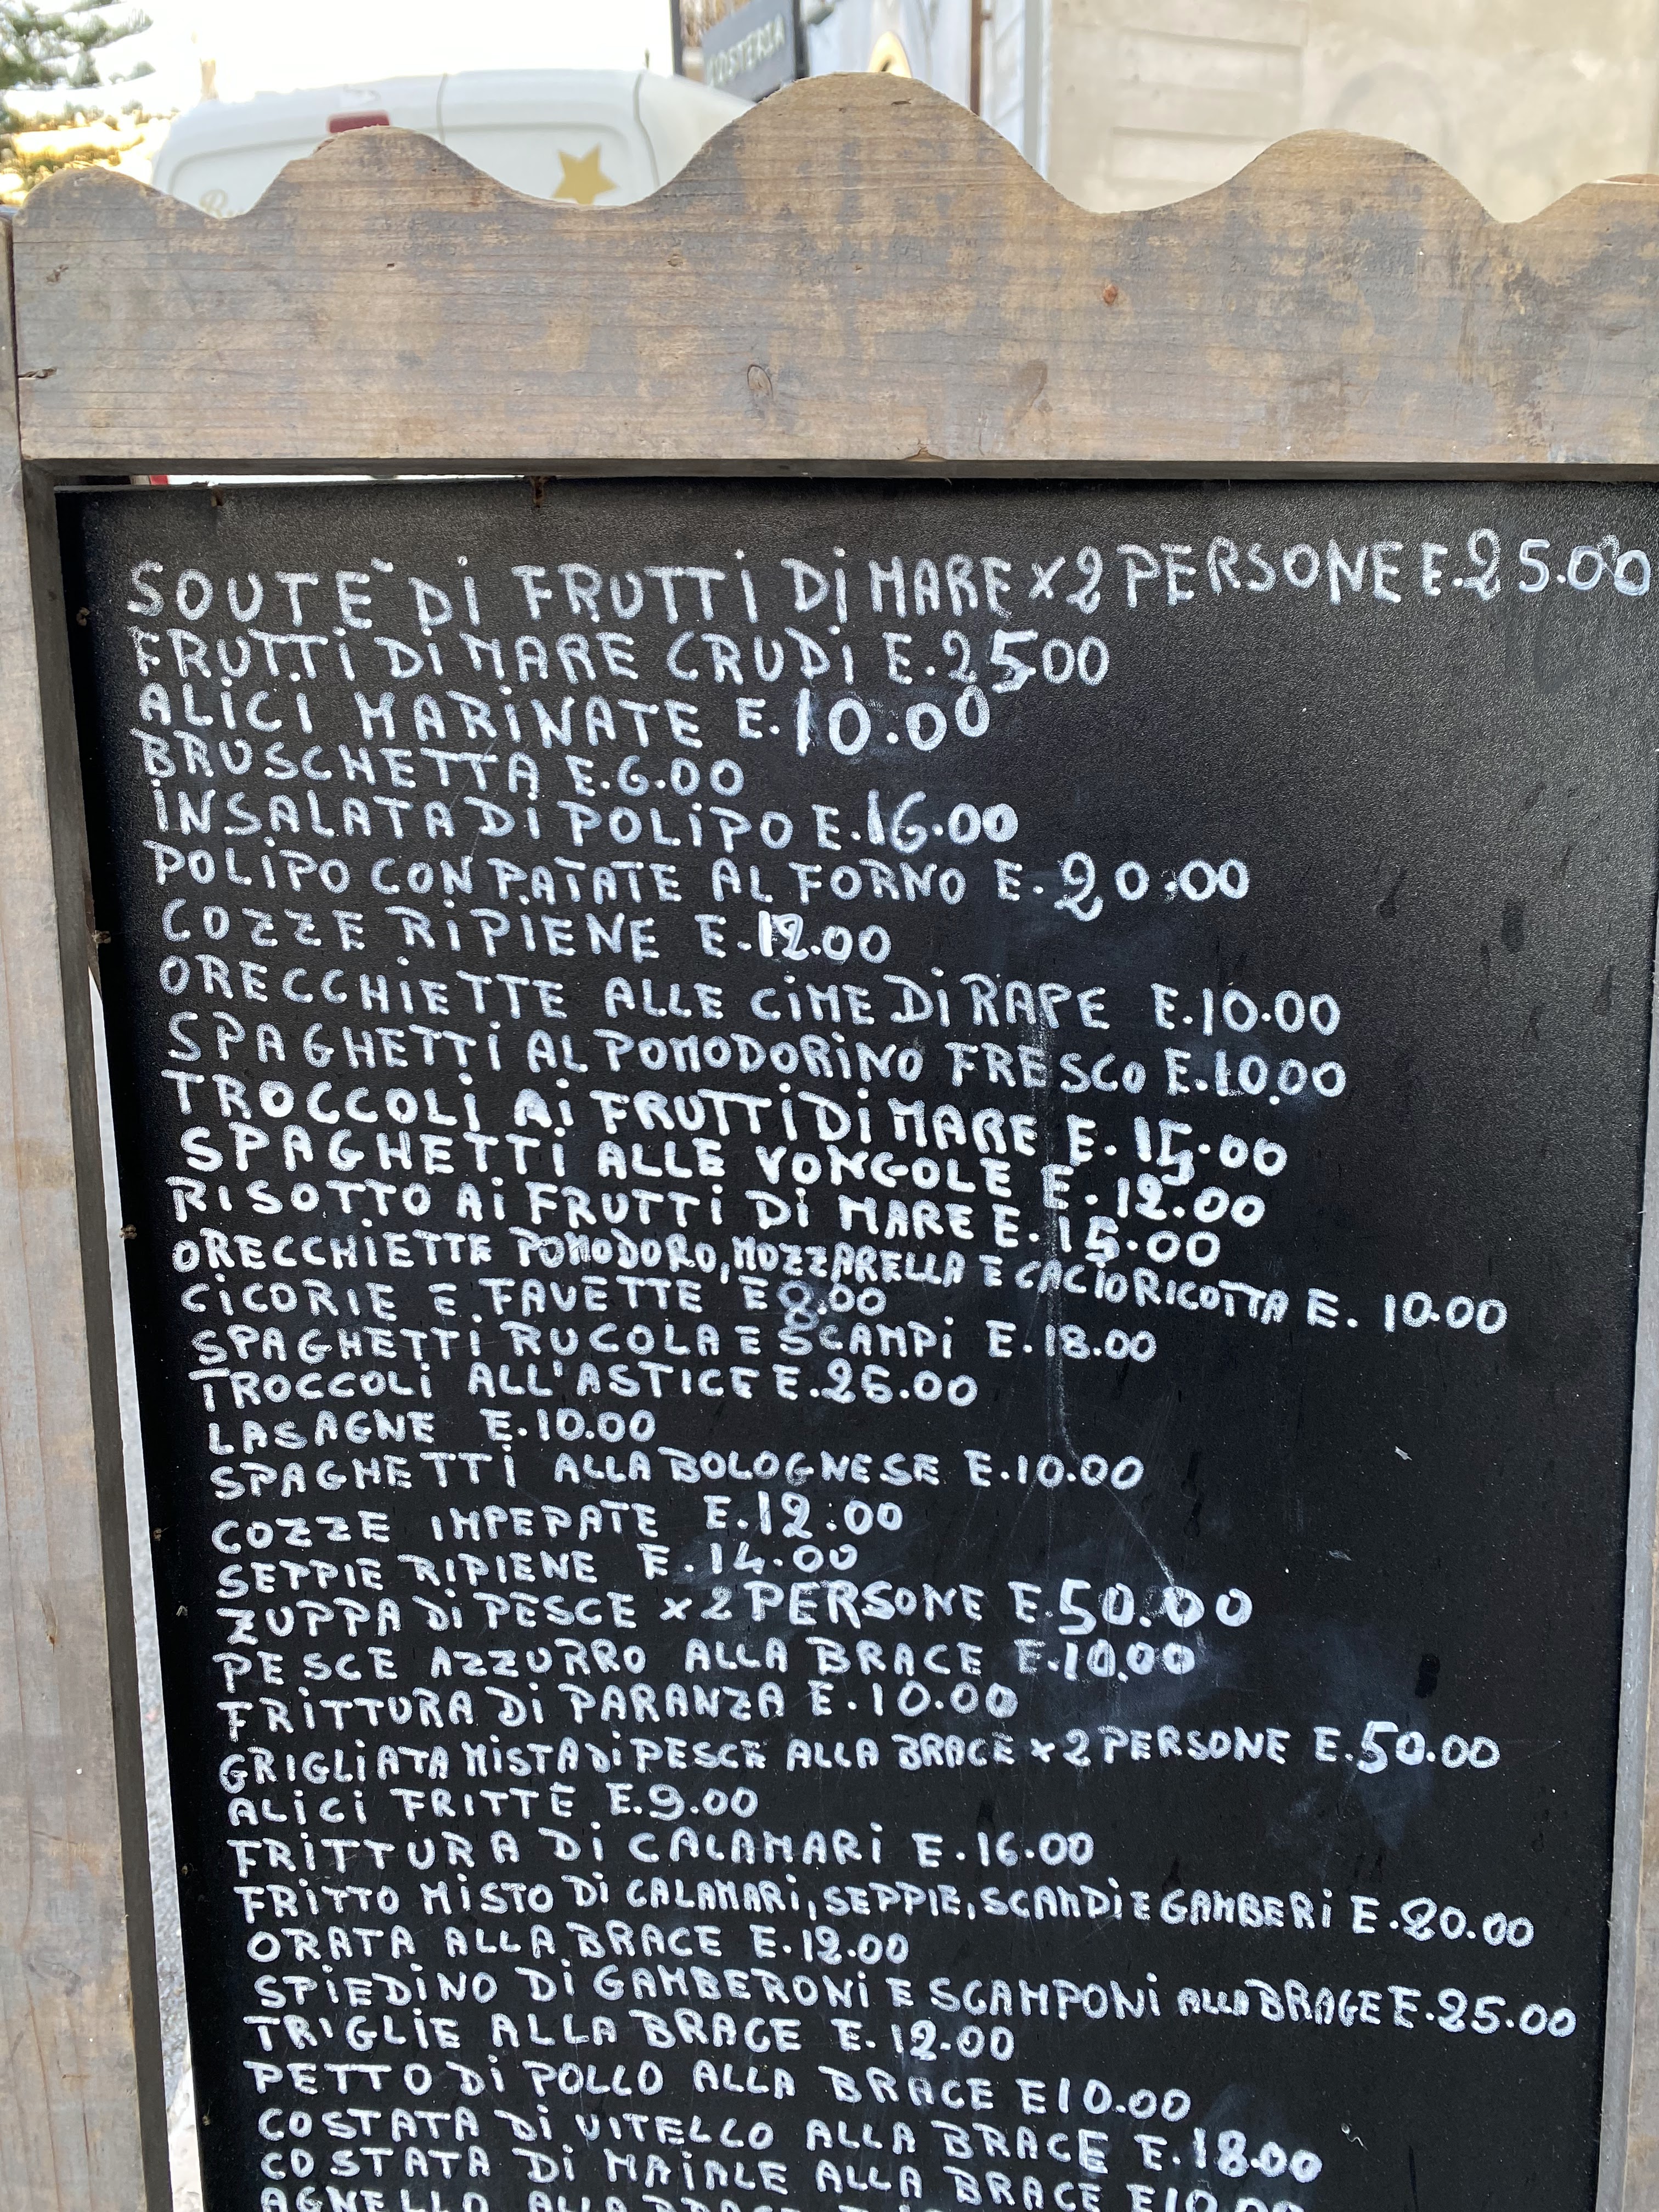 OSTERIA
SOUTE` DI FRUTTI DI MARE x 2 PERSONE E.25.00
FRUTTI DI MARE CRUDI E.2500
ALICI MARINATE E.10.00
BRUSCHETTA E.6.00
INSALATA DI POLIPO E.16.00
POLIPO CON PATATE AL FORNO E.20.00
COZZE RIPIENE E.12.00
ORECCHIETTE ALLE CIME DI RAPE E.10.00
SPAGHETTI AL POMODORINO FRESCO E.10.00
TROCCOLI AI FRUTTI DI MARE E.15.00
SPAGHETTI ALLE VONGOLE E.12.00
RISOTTO AI FRUTTI DI MARE E.15.00
ORECCHIETTE POMODORO, MOZZARELLA E CACIORICOTTA E. 10.00
CICORIE E FAVETTE E 8.00
SPAGHETTI RUCOLA E SCAMPI E.18.00
TROCCOLI ALL'ASTICE E.25.00
LASAGNE E.10.00
SPAGHETTI ALLA BOLOGNESE E.10.00
COZZE IMPEPATE E.12.00
SEPPIE RIPIENE E.14.00
ZUPPA DI PESCE x 2 PERSONE E.50.00
PESCE AZZURRO ALLA BRACE E.10.00
FRITTURA DI PARANZA E.10.00
GRIGLIATA MISTA DI PESCE ALLA BRACE x 2 PERSONE E.50.00
ALICI FRITTE E.9.00
FRITTURA DI CALAMARI E.16.00
FRITTO MISTO DI CALAMARI, SEPPIE, SCAMPI E GAMBERI E.20.00
ORATA ALLA BRACE E.12.00
SPIEDINO DI GAMBERONI E SCAMPONI ALLA BRACE E.25.00
TRIGLIE ALLA BRACE E.12.00
PETTO DI POLLO ALLA BRACE E10.00
COSTATA DI VITELLO ALLA BRACE E.18.00
COSTATA DI MAIALE ALLA BRACE E10.00
AGNELLO ALLA BRACE